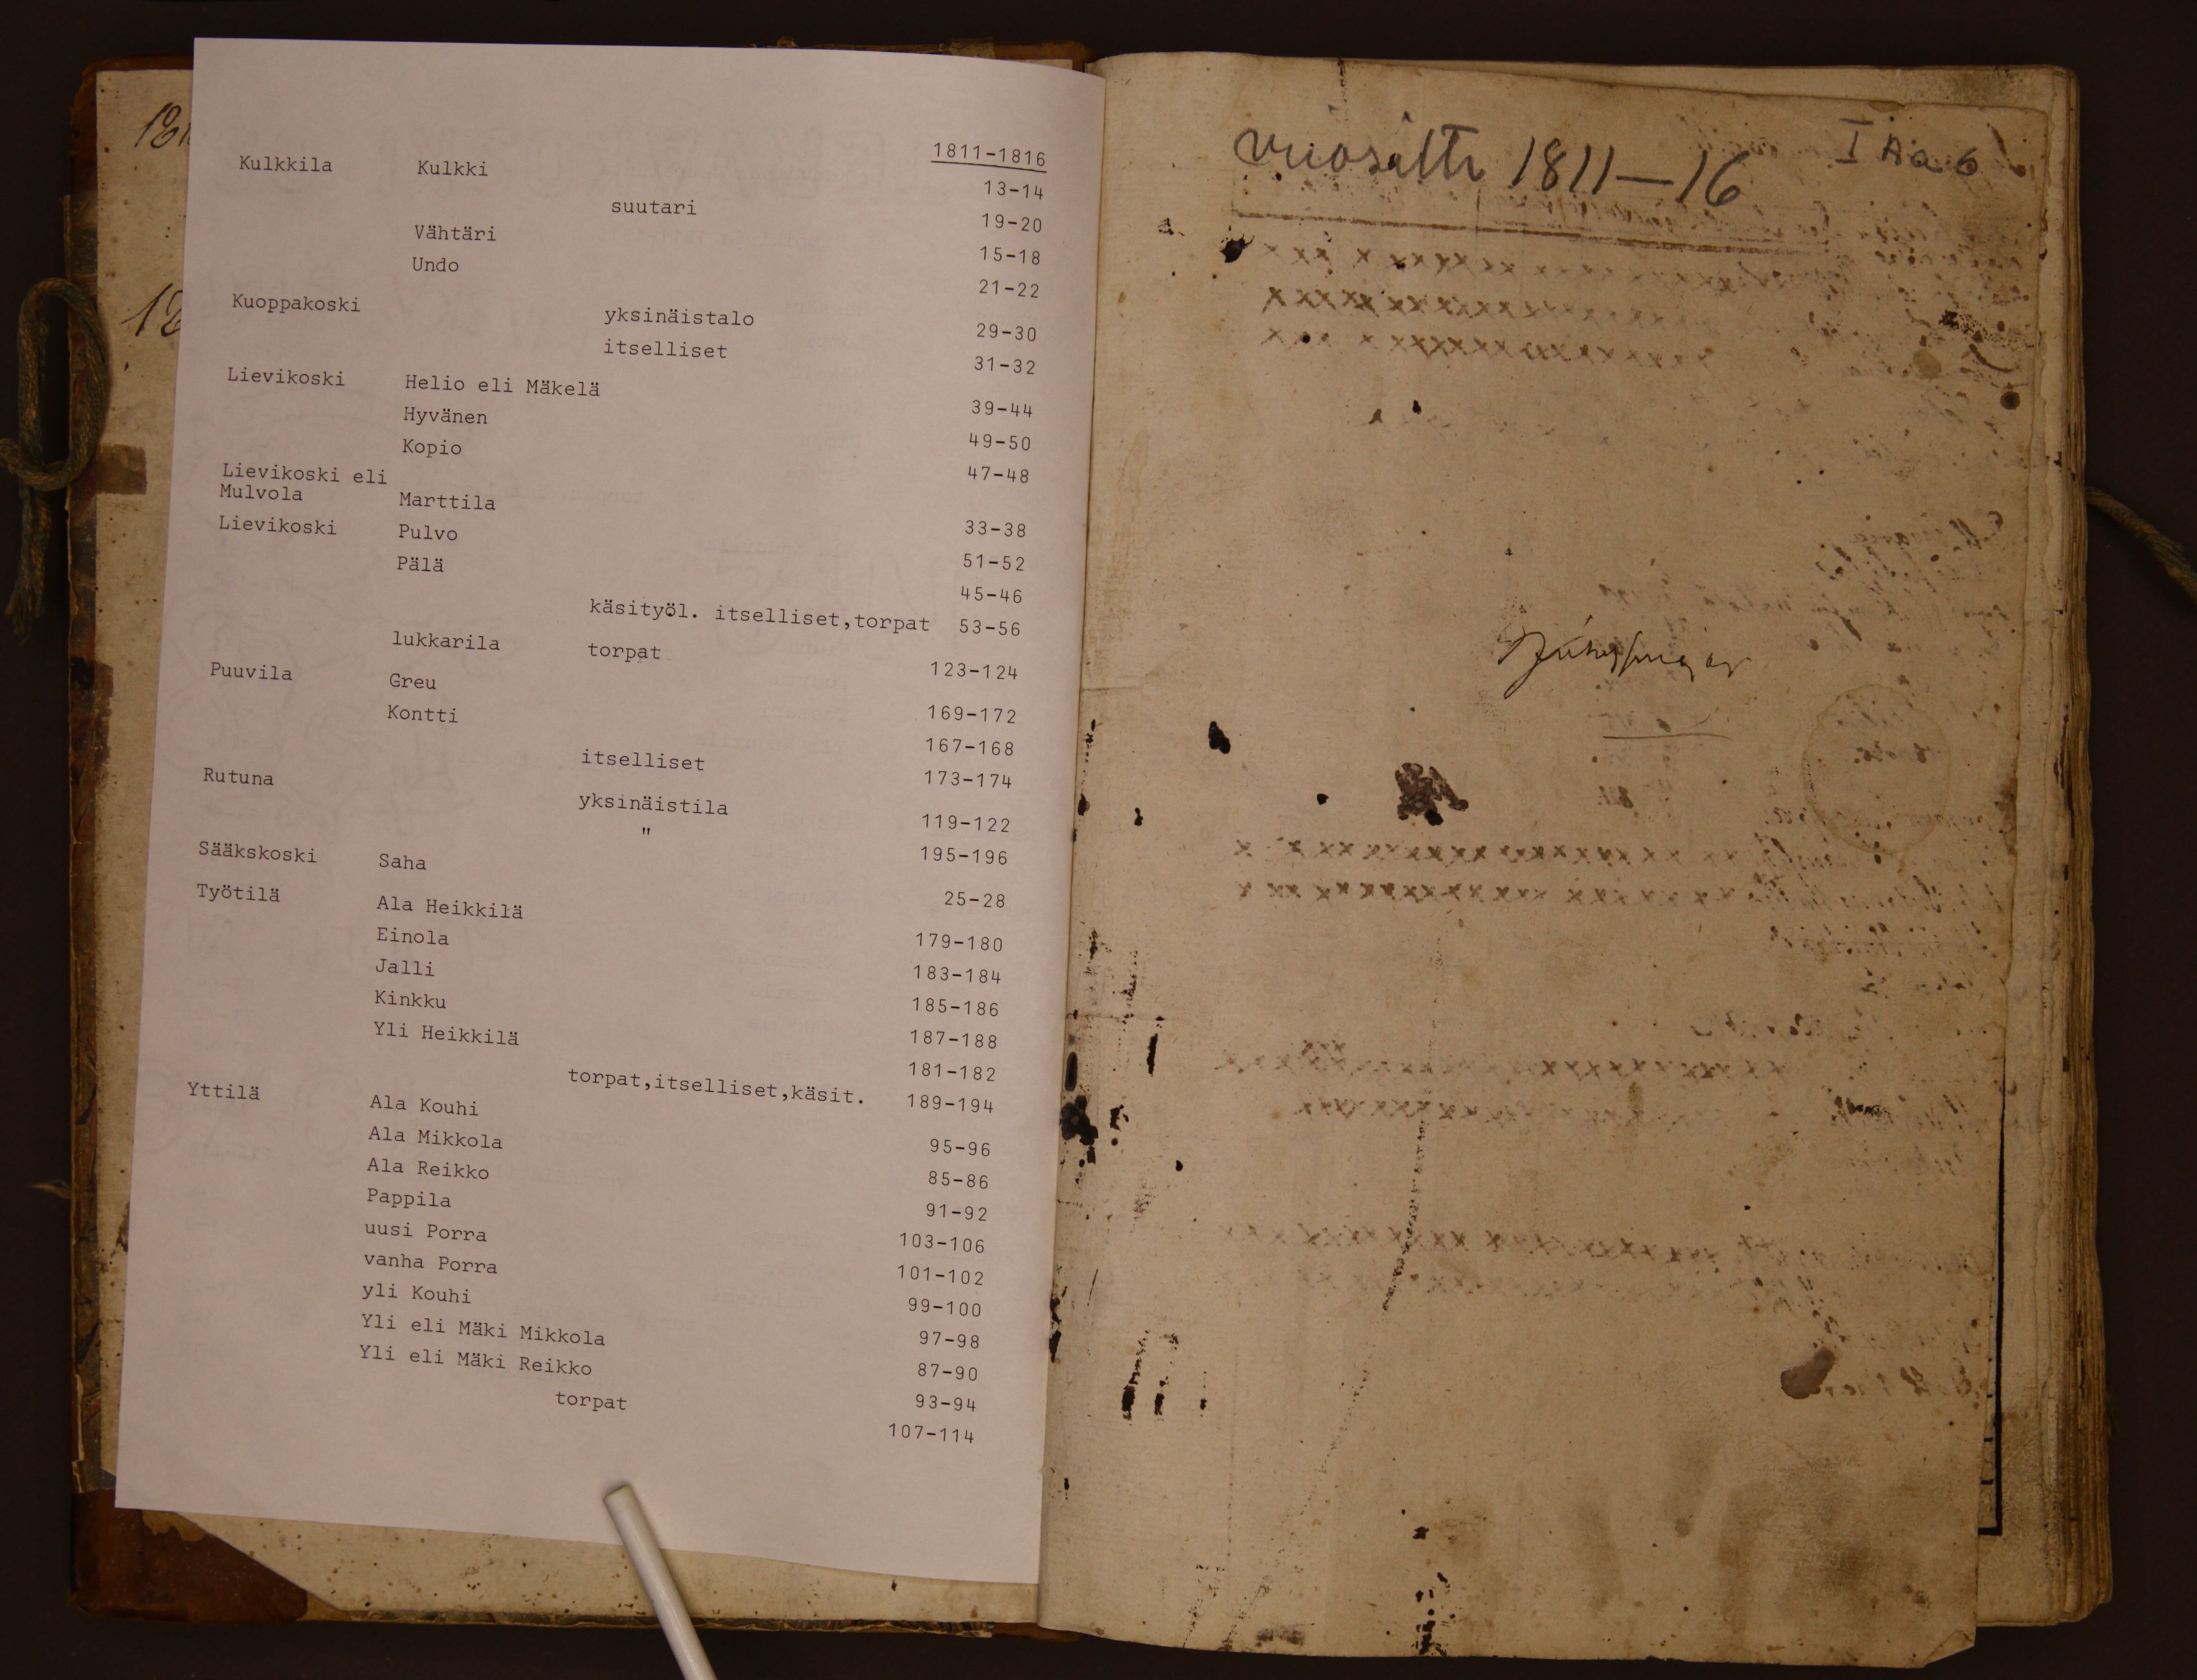 1811-1816
Kulkkila Kulkki 13-14
suutari 19-20
Vähtäri 15-18
Undo 21-22
Kuoppakoski yksinäistalo 29-30
itselliset 31-32
Lievikoski Helio eli Mäkelä 39-44
Hyvänen 49-50
Kopio 47-48
Lievikoski eli
Mulvola Marttila 33-38
Lievikoski Pulvo 51-52
Pälä 45-46
käsityöl. itselliset,torpat 53-56
lukkarila torpat 123-124
Puuvila Greu 169-172
Kontti 167-168
itselliset 173-174
Rutuna yksinäistila 119-122
" 195-196
Sääkskoski Saha 25-28
Työtilä Ala Heikkilä 179-180
Einola 183-184
Jalli 185-186
Kinkku 187-188
Yli Heikkilä 181-182
torpat,itselliset,käsit. 189-194
Yttilä Ala Kouhi 95-96
Ala Mikkola 85-86
Ala Reikko 91-92
Pappila 103-106
uusi Porra 101-102
vanha Porra 99-100
yli Kouhi 97-98
Yli eli Mäki Mikkola 87-90
Yli eli Mäki Reikko 93-94
torpat 107-114
I Aa 6
vuosilta 1811—16